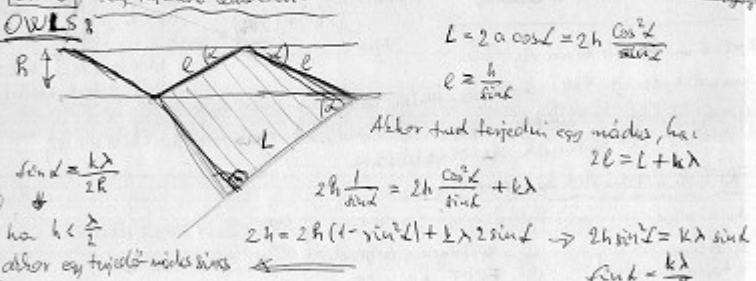 OWLS:
h
l α α l
α
L
L = 2a cosα = 2h cos²α / sinα
l = h / sinα
Akkor tud terjedni egy módus, ha:
2l = L + kλ
sinα = kλ / 2h
2h 1/sinα = 2h cos²α/sinα + kλ
ha h < λ/2
2h = 2h (1 - sin²α) + kλ 2sinα → 2h sin²α = kλ sinα
akkor egy terjedő módus sincs
sinα = kλ